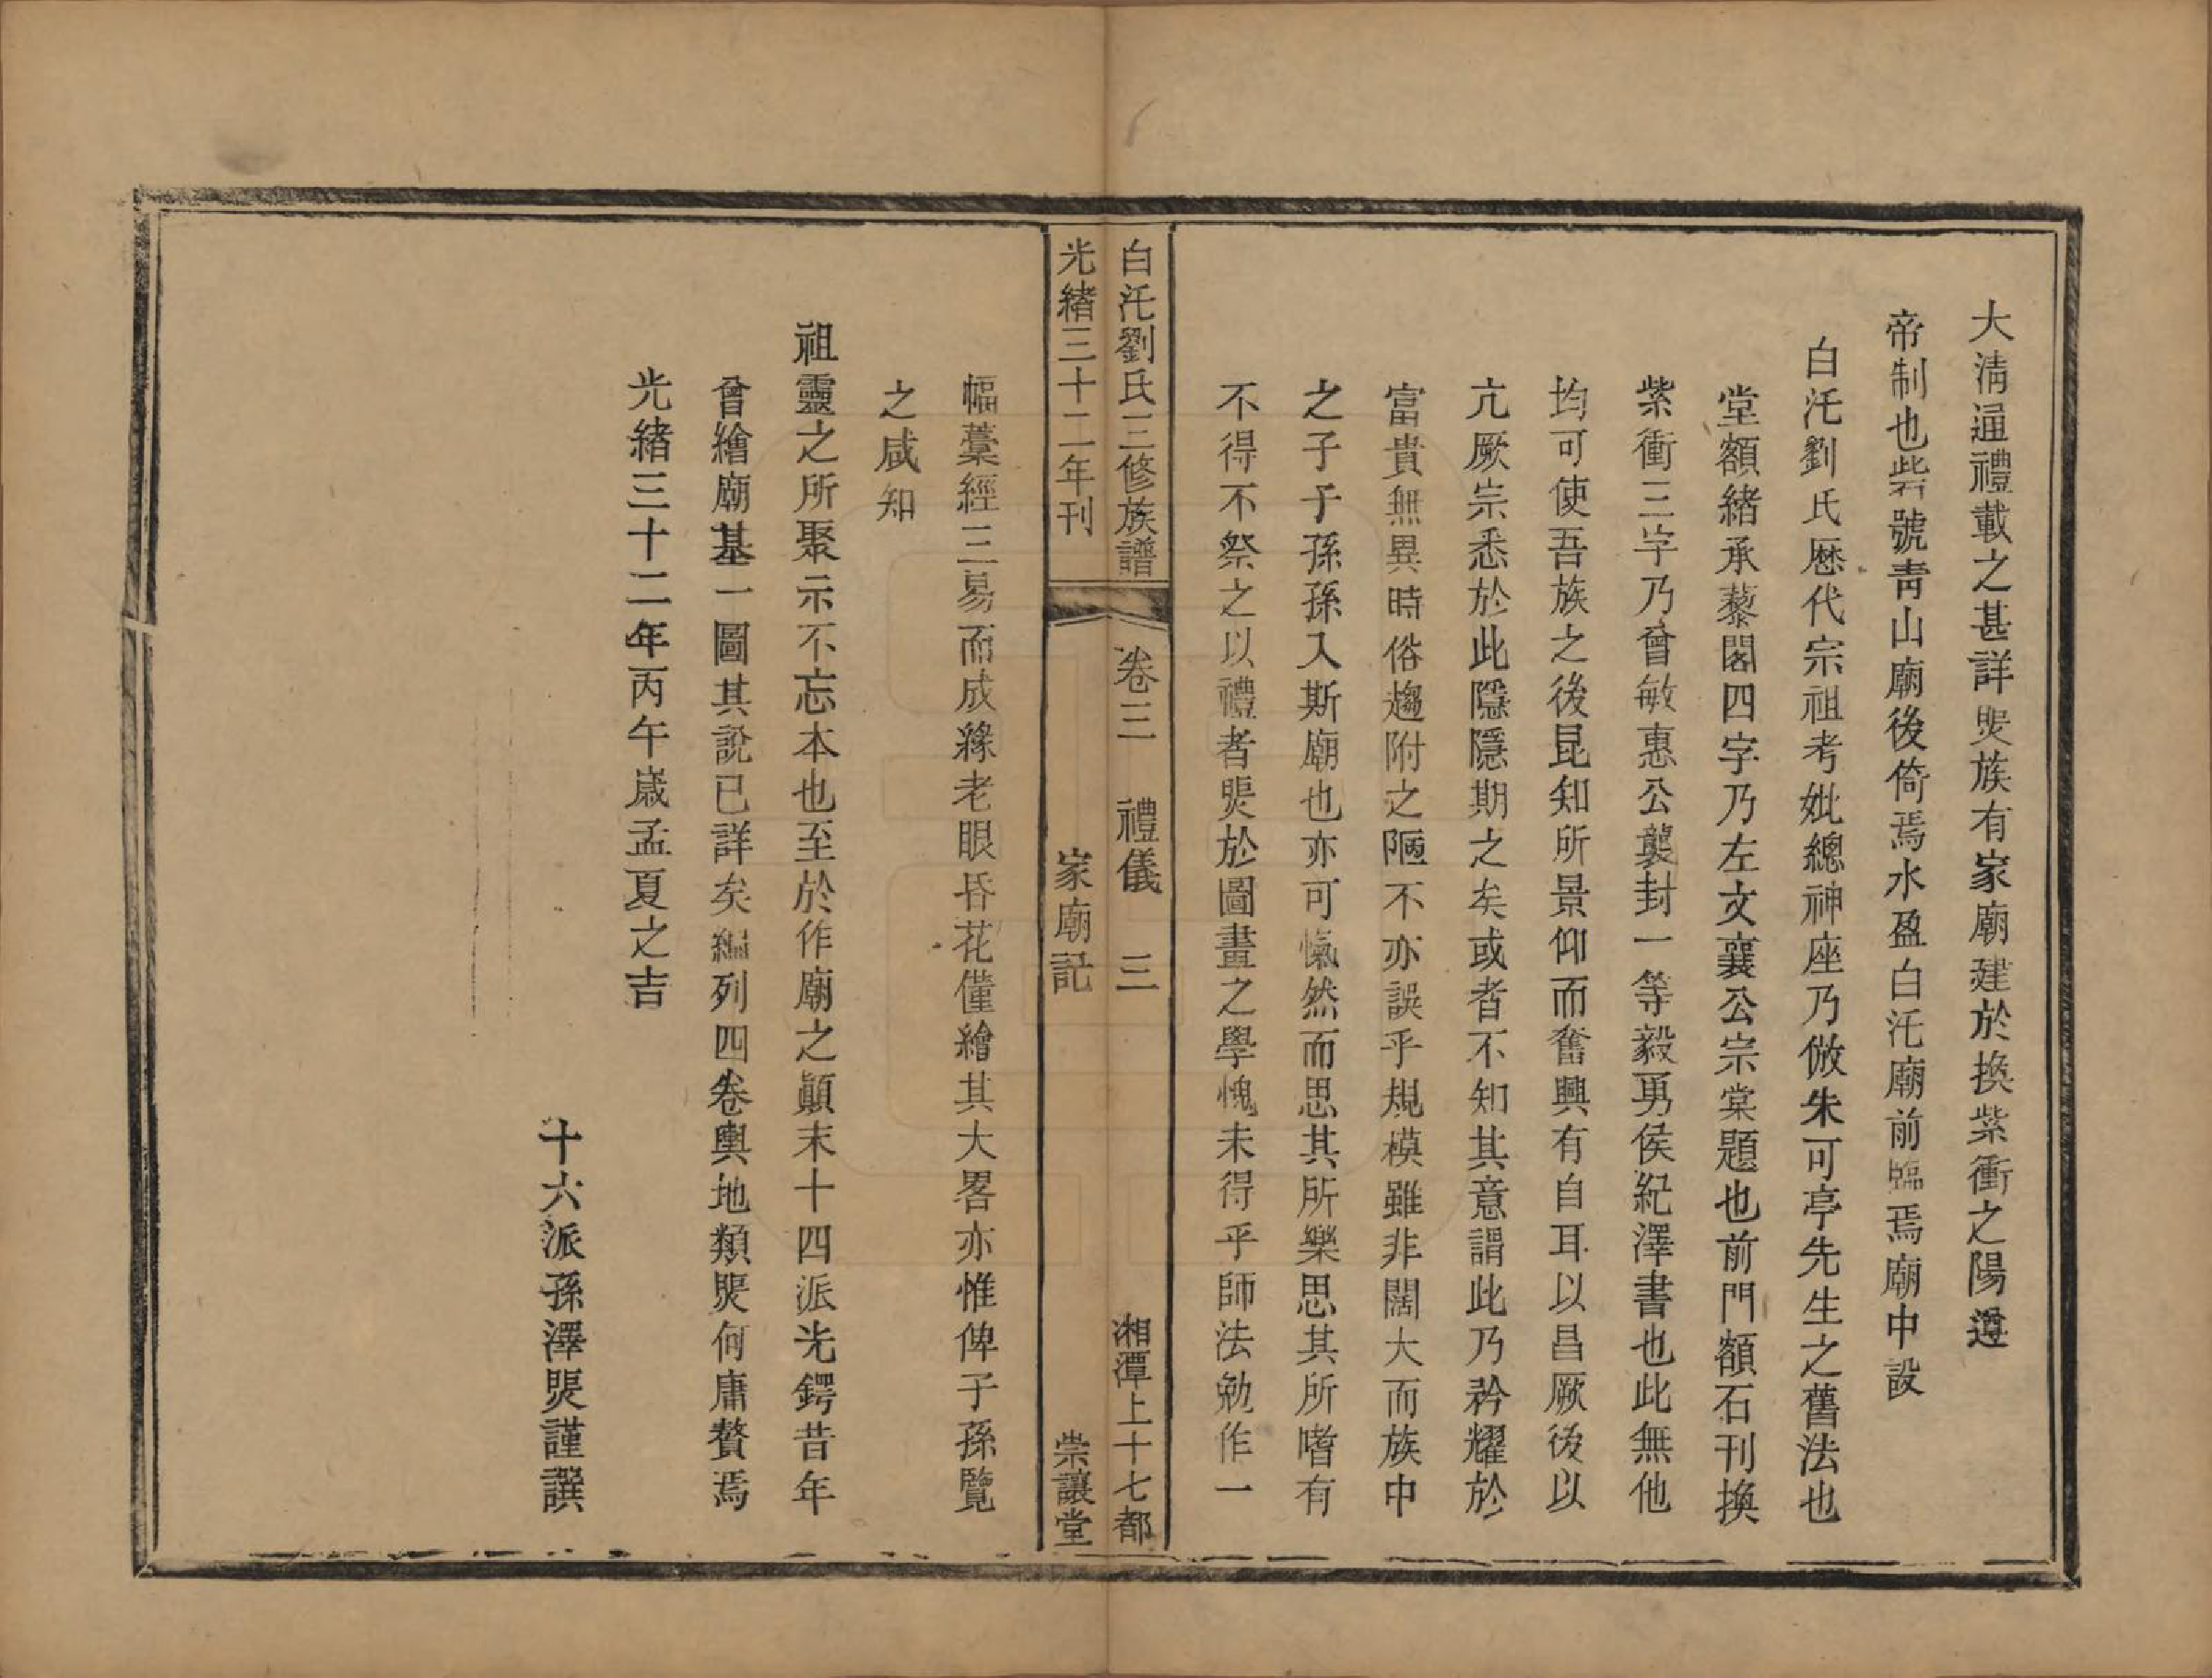 大清通禮載之甚詳煚族有家廟建於換紫衝之陽遵
帝制也砦號靑山廟後倚焉水盈白汑廟前臨焉廟中設
白汑劉氏歷代宗祖考妣總神座乃倣朱可亭先生之舊法也
堂額緒承藜閣四字乃左文襄公宗棠題也前門額石刊換
紫衝三字乃曾敏惠公襲封一等毅勇侯紀澤書也此無他
均可使吾族之後昆知所景仰而奮興有自耳以昌厥後以
亢厥宗悉於此隱隱期之矣或者不知其意謂此乃矜耀於
富貴無異時俗趨附之陋不亦誤乎規模雖非闊大而族中
之子子孫孫入斯廟也亦可愾然而思其所樂思其所嗜有
不得不祭之以禮者煚於圖畫之學愧未得乎師法勉作一
白汑劉氏三修族譜 卷三 禮儀 三 湘潭上十七都
光緒三十二年刊 家廟記 崇讓堂
幅藁經三易而成緣老眼昏花僅繪其大畧亦惟俾子孫覽
之咸知
祖靈之所聚示不忘本也至於作廟之顚末十四派光鍔昔年
曾繪廟基一圖其說已詳矣編列四卷輿地類煚何庸贅焉
光緒三十二年丙午歲孟夏之吉
十六派孫澤煚謹譔